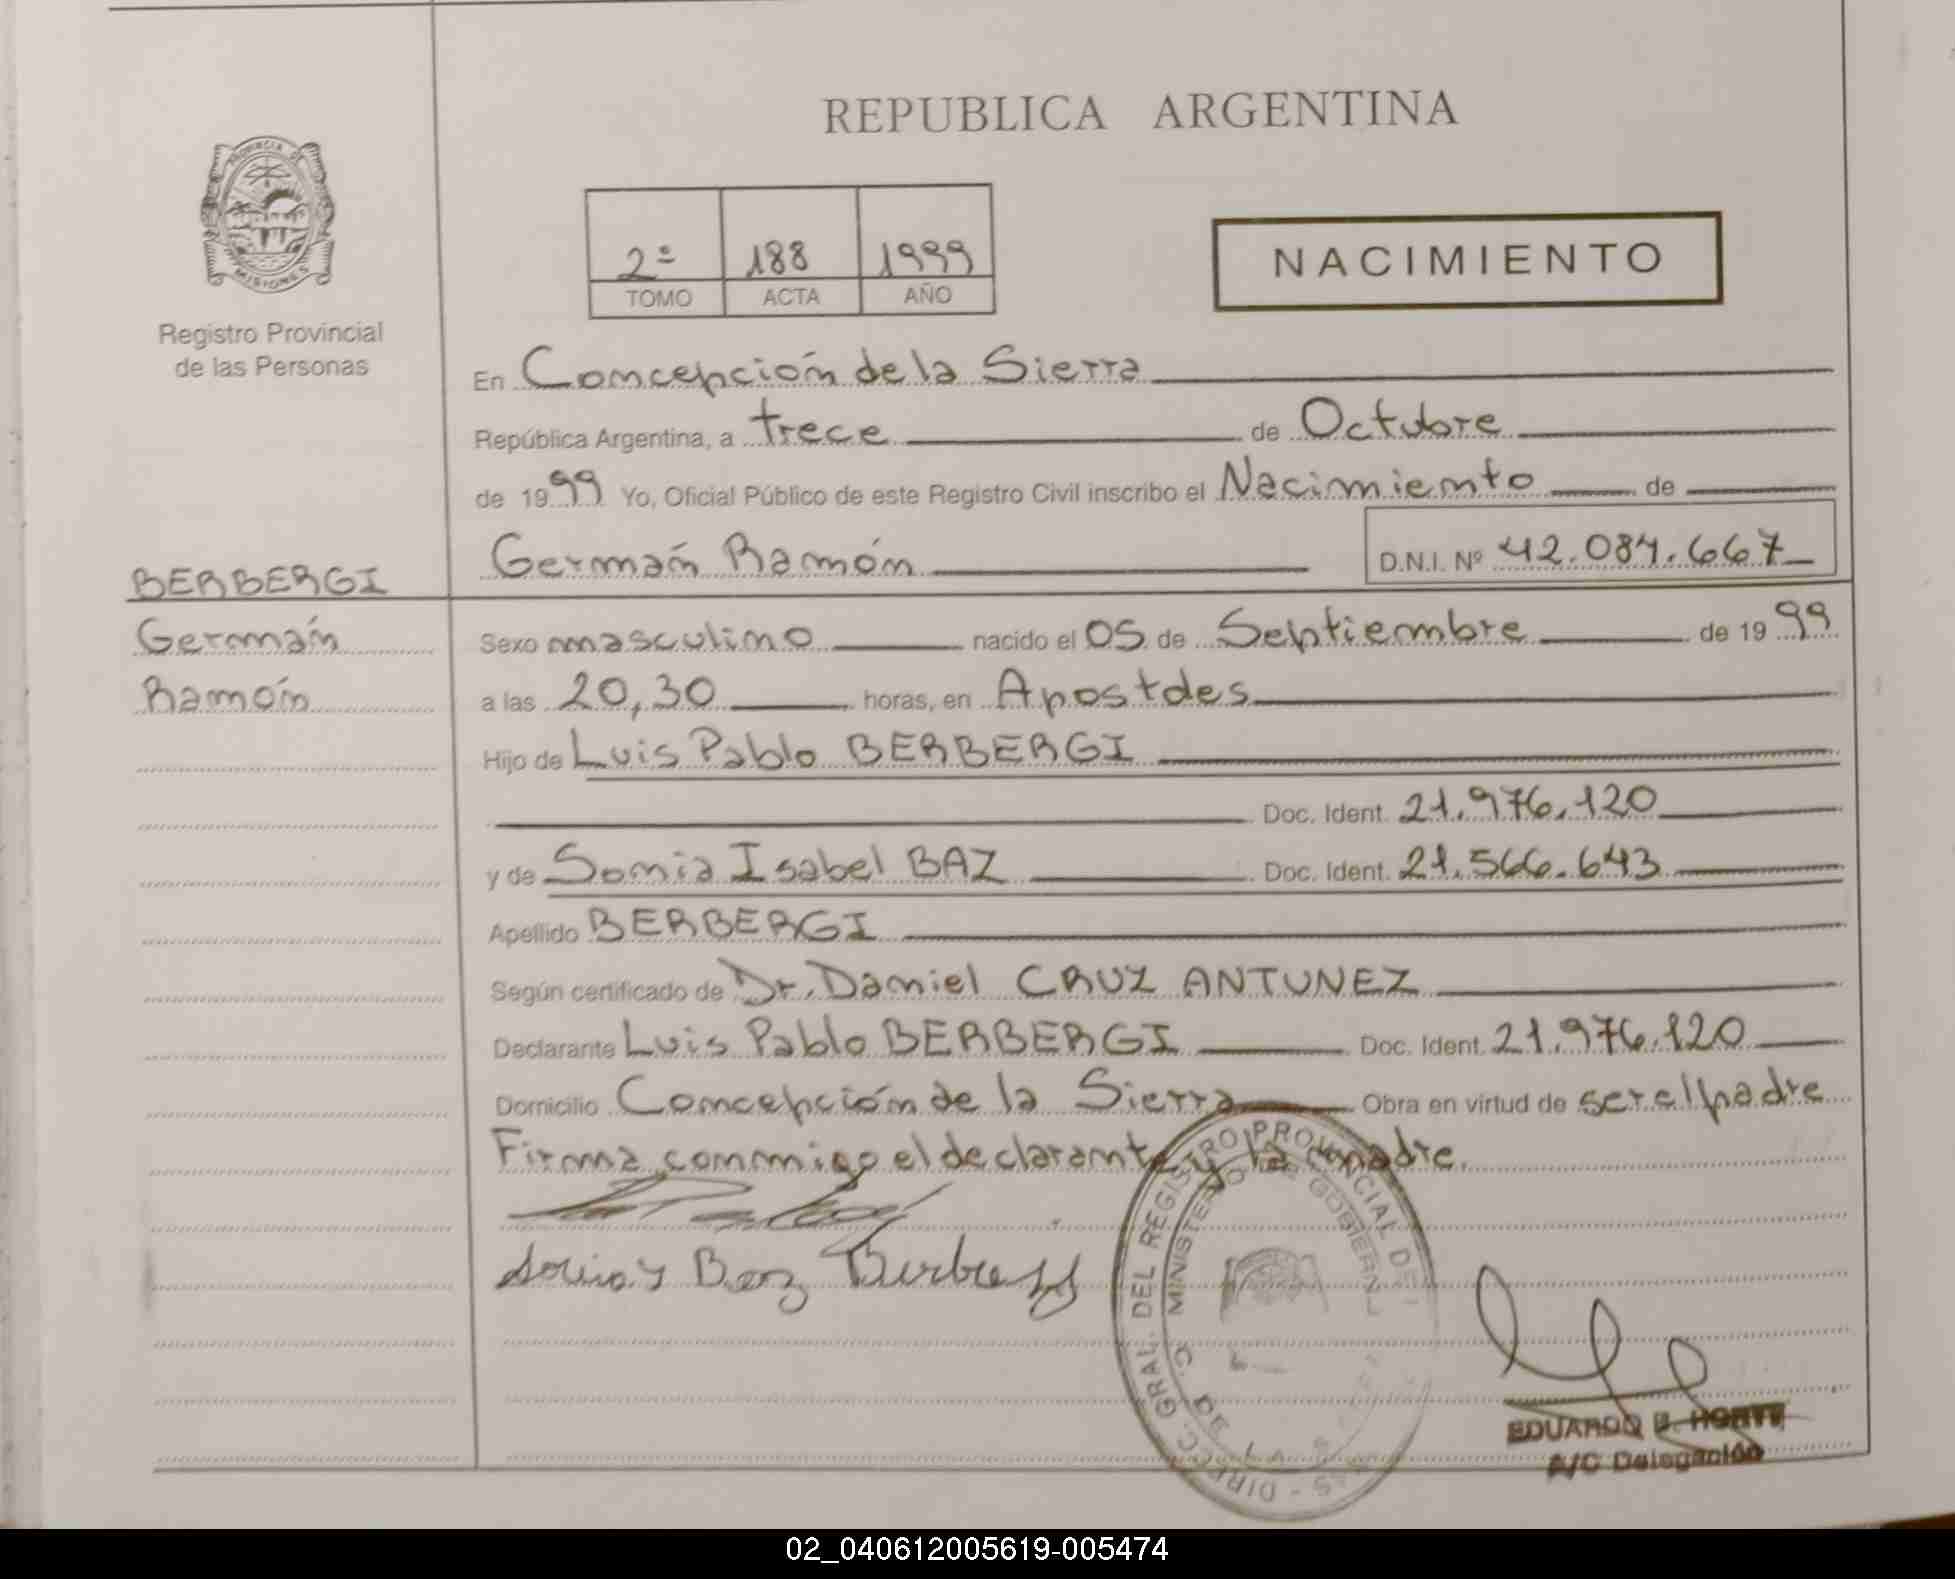 REPUBLICA ARGENTINA
PROVINCIA DE
MISIONES
Registro Provincial
de las Personas
2º 188 1999
TOMO ACTA AÑO
NACIMIENTO
En Concepción de la Sierra
República Argentina, a trece de Octubre
de 1999 Yo, Oficial Público de este Registro Civil inscribo el Nacimiento de
Germán Ramón D.N.I. Nº 42.084.667
BERBERGI
Germán
Ramón
Sexo masculino nacido el 05 de Septiembre de 1999
a las 20,30 horas, en Apostoles
Hijo de Luis Pablo BERBERGI
Doc. Ident. 21.976.120
y de Sonia Isabel BAZ Doc. Ident. 21.566.643
Apellido BERBERGI
Según certificado de Dr. Daniel CRUZ ANTUNEZ
Declarante Luis Pablo BERBERGI Doc. Ident. 21.976.120
Domicilio Concepción de la Sierra Obra en virtud de ser el padre
Firma conmigo el declarante y la madre.
DIREC. GRAL. DEL REGISTRO PROVINCIAL DE
MINISTERIO DE GOBIERNO
EDUARDO
A/C Delegación
02_040612005619-005474